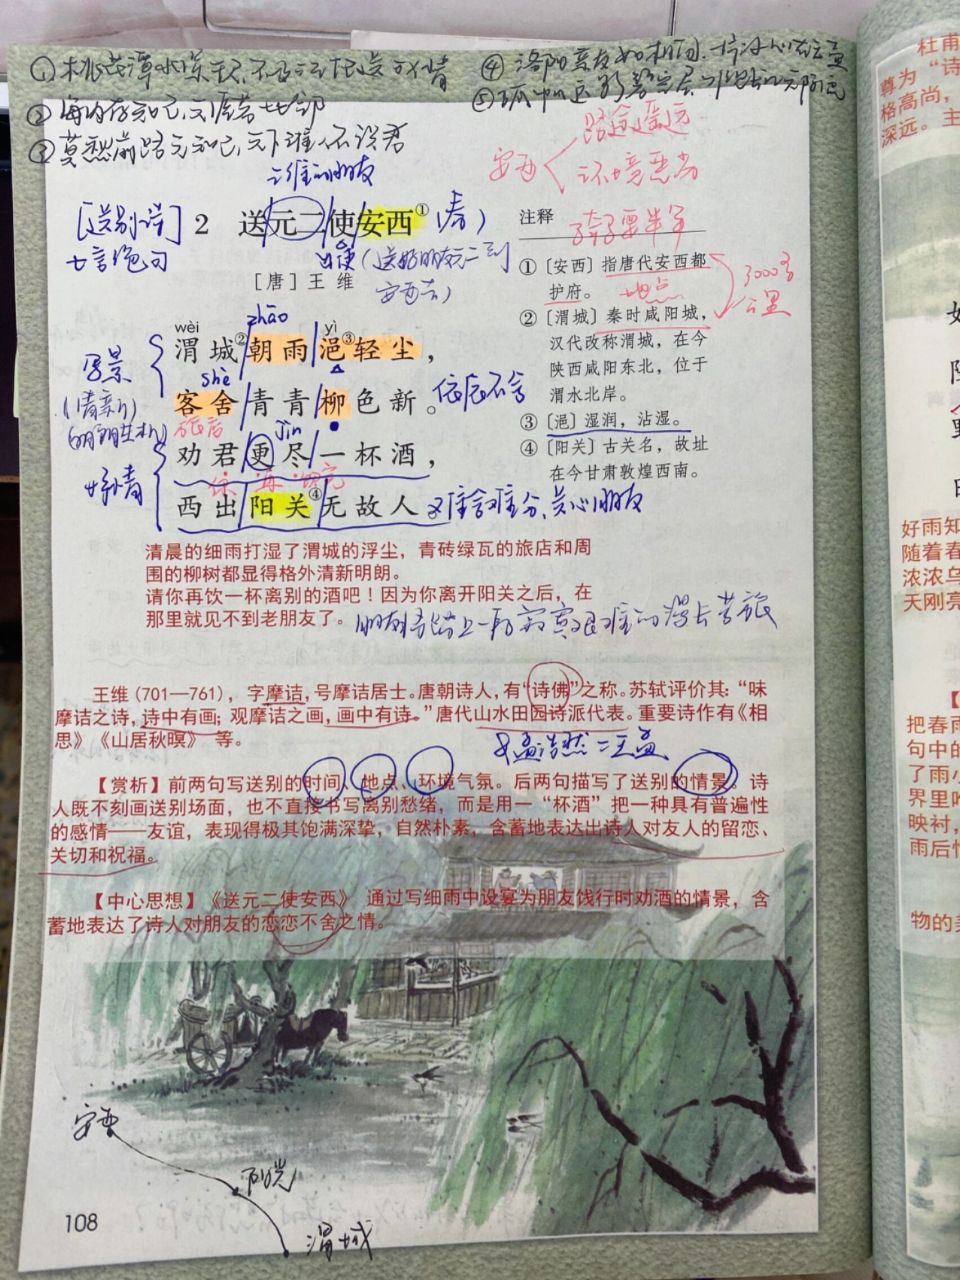 ①桃花潭水深千尺,不及汪伦送我情
②海内存知己,天涯若比邻
③莫愁前路无知己,天下谁人不识君
④洛阳亲友如相问,一片冰心在玉壶
⑤
路途遥远
安西
环境恶劣
[送别诗]
七言绝句
2 送元二使安西①
(春)
出使(送好朋友元二到
安西去)
[唐]王维
wèi
zhāo
yì
渭城②朝雨浥③轻尘,
shè
客舍青青柳色新。
依依不舍
旅店
jìn
劝君更尽一杯酒,
再
西出阳关④无故人。
难舍难分、关心朋友
写景
(清新)
抒情
注释
①〔安西〕指唐代安西都
护府。
地点
3000多
公里
②〔渭城〕秦时咸阳城,
汉代改称渭城,在今
陕西咸阳东北,位于
渭水北岸。
③〔浥〕湿润,沾湿。
④〔阳关〕古关名,故址
在今甘肃敦煌西南。
清晨的细雨打湿了渭城的浮尘,青砖绿瓦的旅店和周
围的柳树都显得格外清新明朗。
请你再饮一杯离别的酒吧!因为你离开阳关之后,在
那里就见不到老朋友了。
朋友将踏上一段寂寞艰难的漫长苦旅
王维(701—761),字摩诘,号摩诘居士。唐朝诗人,有“诗佛”之称。苏轼评价其:“味
摩诘之诗,诗中有画;观摩诘之画,画中有诗。”唐代山水田园诗派代表。重要诗作有《相
思》《山居秋暝》等。
与孟浩然=王孟
【赏析】前两句写送别的时间、地点、环境气氛。后两句描写了送别的情景。诗
人既不刻画送别场面,也不直接书写离别愁绪,而是用一“杯酒”把一种具有普遍性
的感情——友谊,表现得极其饱满深挚,自然朴素,含蓄地表达出诗人对友人的留恋、
关切和祝福。
【中心思想】《送元二使安西》 通过写细雨中设宴为朋友饯行时劝酒的情景,含
蓄地表达了诗人对朋友的恋恋不舍之情。
安西
阳关
渭城
108
杜甫
尊为“诗
格高尚,
深远。主
好雨知
随着春
浓浓乌
天刚亮
把春雨
句中的
了雨小
界里
映衬,
雨后
物的美